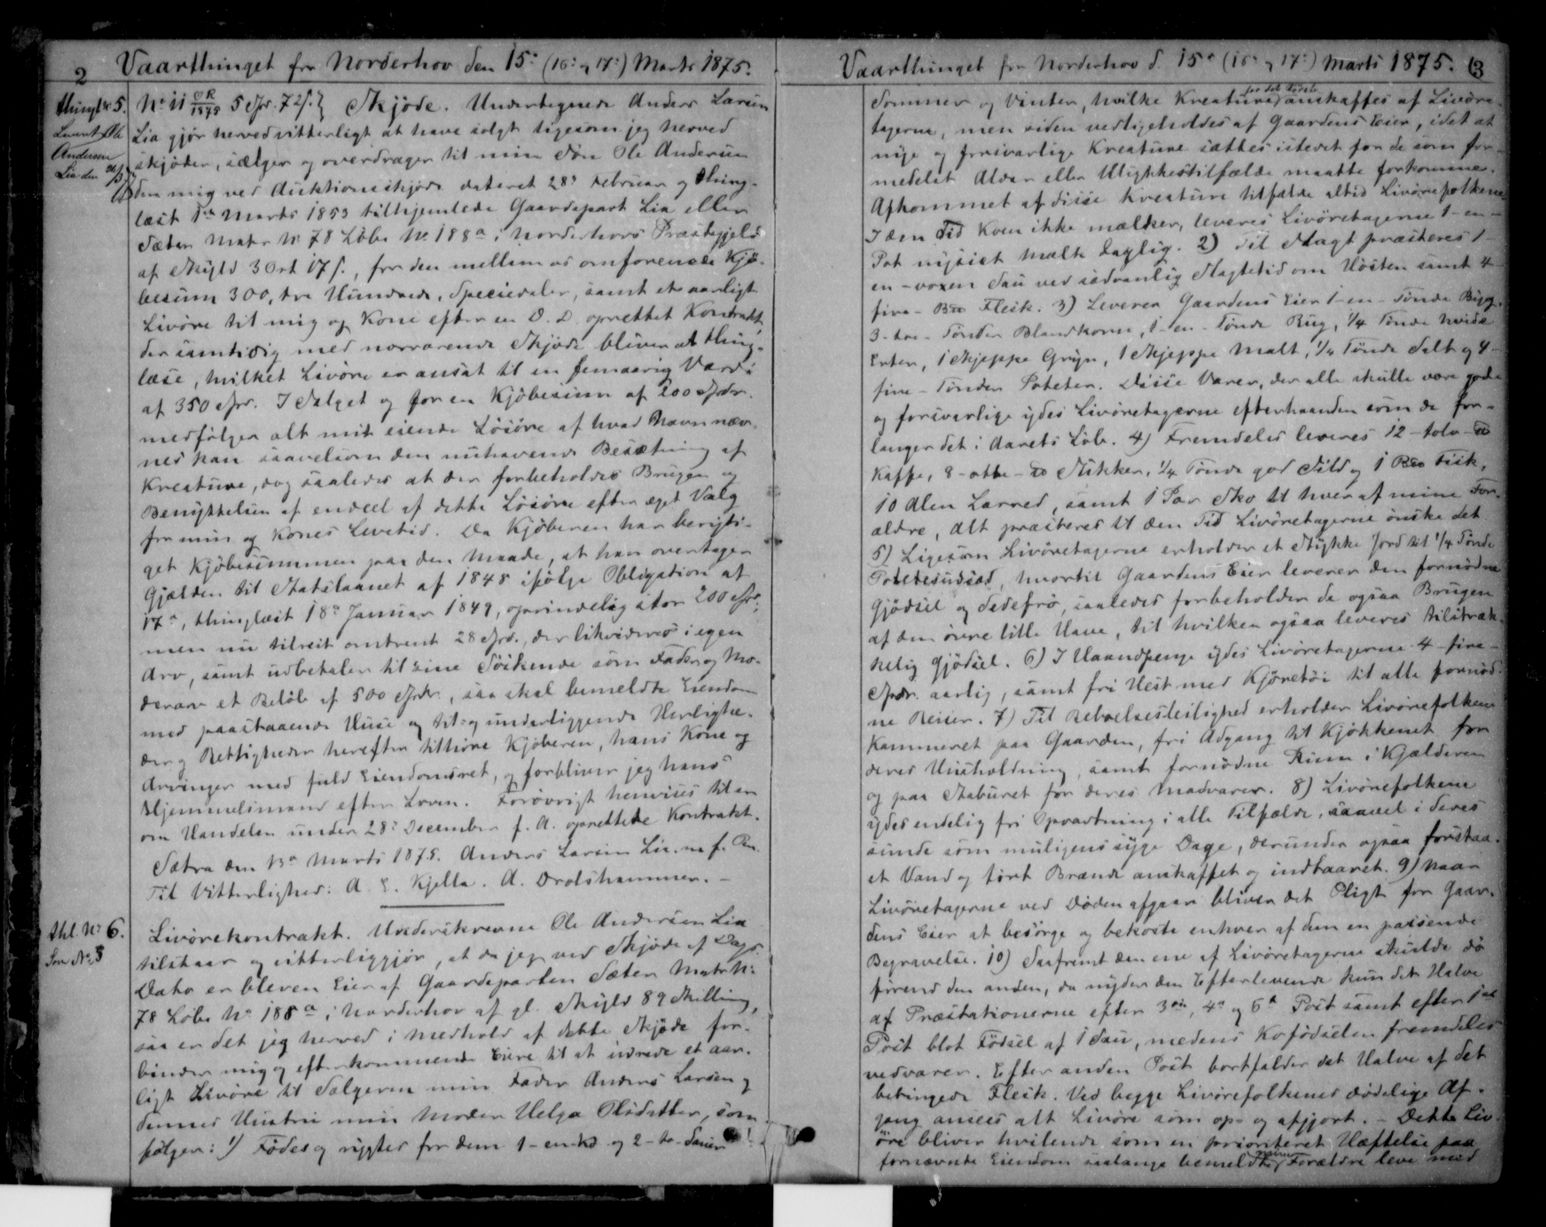 2
Vaarthinget for Norderhov den 15de (16: og 17:) Marts 1875.
Thingl. No 5.
Levert Ole
Andersen
Lia den
No 11 5 Spd. 72 s. Skjöde. Undertegnede Anders Larsen
Lia gjör herved vitterligt at have solgt ligesom jeg herved
skjöder, sælger og overdrager til min Sön Ole Andersen
den mig ved Auktionsskjöde dateret 28de Februar og thing-
læst 1ste Marts 1853 tilhjemlede Gaardepart Lia eller
Sæter Matr. No 78 Löbe No 188a i Norderhovs Præstegjeld
af Skyld 3 Ort 17 s., for den mellem os omforenede Kjö-
besum 300, tre Hundrede, Speciedaler, samt et aarligt
Livöre til mig og Kone efter en D. D. oprettet Kontrakt,
der samtidig med nærværende Skjöde bliver at thing-
læse, hvilket Livöre er ansat til en femaarig Værdi
af 350 Spd. I Salget og for en Kjöbesum af 200 Spdr.
medfölger alt mit eiende Lösöre af hvad Navn næv-
nes kan saavelsom den nuhavende Besætning af
Kreature, dog saaledes at der forbeholdes Brugen og
Benyttelsen af endeel af dette Lösöre efter eget Valg
for min og Kones Levetid. Da Kjöberen har berigti-
get Kjöbesummen paa den Maade, at han overtager
Gjælden til Statslaanet af 1848 ifölge Obligation af
17de, thinglæst 18de Januar 1849, oprindelig stor 200 Spd.,
men nu tilrest omtrent 28 Spd., der likvideres i egen
Arv, samt udbetaler til sine Söskende som Fader og Mo-
derarv et Belöb af 500 Spdr., saa skal bemeldte Eiendom
med paastaaende Huse og til- og underliggende Herlighe-
der og Rettigheder herefter tilhöre Kjöberen, hans Kone og
Arvinger med fuld Eiendomsret, og forbliver jeg hans
Hjemmelsmand efter Loven. Forövrigt henvises til en
om Handelen under 28de December f. A. oprettede Kontrakt.
Sætra den 13de Marts 1875. Anders Larsen Lia m. f. Pen.
Til Vitterlighed: A. E. Kjella. A. Drolshammer. –
Thl. No 6.
Som No 5
Livörekontrakt. Underskrevne Ole Andersen Lia
tilstaar og vitterliggjör, at da jeg ved Skjöde af Dags
Dato er bleven Eier af Gaardeparten Sæter Matr. No:
78 Löbe No 188a i Norderhov af gl. Skyld 89 Skilling,
saa er det jeg herved i Medhold af dette Skjöde for-
binder mig og efterkommende Eiere til at udrede et aar-
ligt Livöre til Sælgeren min Fader Anders Larsen og
dennes Hustru min Moder Helga Olsdatter, som
fölger: 1) Födes og rygtes for dem 1 – en Ko og 2 – to Sauer
Vaarthinget for Norderhov d. 15de (16de og 17:) Marts 1875.
3
Sommer og Vinter, hvilke Kreature for det förste anskaffes af Livöre-
tagerne, men siden vedligeholdes af Gaardens Eier, idet at
nye og forsvarlige Kreature sættes istedet for de som for-
medelst Alder eller Ulykkestilfælde maatte forkomme.
Afkommet af disse Kreature tilfalde altid Livörefolkene.
I den Tid Koen ikke mælker, leveres Livöretagerne 1 – en –
Pot nysiet Mælk daglig. 2) Til Slagt præsteres 1 –
en – voxen Sau ved sædvanlig Slagtetid om Hösten samt 4 –
fire – Bpd Flesk. 3) Leverer Gaardens Eier 1 – en – Tönde Byg,
3 – tre – Tönder Blandkorn, 1 – en – Tönde Rug, 1/4 Tönde hvide
Erter, 1 Skjeppe Gryn, 1 Skjeppe Malt, 1/4 Tönde Salt og 4 –
fire – Tönder Poteter. Disse Varer, der alle skulle være gode
og forsvarlige ydes Livöretagerne efterhaanden som de for-
langer det i Aarets Löb. 4) Fremdeles leveres 12 – tolv –
Kaffe, 8 – otte – Sukker, 1/4 Tönde god Sild og 1 Bpd Fisk,
10 Alen Lærred, samt 1 Par Sko til hver af mine For-
ældre, Alt præsteres til den Tid Livöretagerne önske det.
5) Ligesom Livöretagerne erholder et Stykke Jord til 1/4 Tönde
Potetesudsæd, hvortil Gaardens Eier leverer den fornödne
Gjödsel og Sædefrö, saaledes forbeholder de ogsaa Brugen
af den övre lille Have, til hvilken ogsaa leveres tilstræk-
kelig Gjödsel. 6) I Haandpenge ydes Livöretagerne 4 – fire –
Spdr. aarlig, samt fri Hest med Kjöretöi til alle fornöd-
ne Reiser. 7) Til Beboelsesleilighed erholder Livörefolkene
Kammeret paa Gaarden, fri Adgang til Kjökkenet for
deres Husholdning, samt fornödne Rum i Kjælderen
og paa Staburet for deres Madvarer. 8) Livörefolkene
ydes endelig fri Opvartning i alle Tilfælde, saavel i deres
sunde som muligens syge Dage, derunder ogsaa forstaa-
et Vand og tört Brænde anskaffet og indbaaret. 9) Naar
Livöretagerne ved Döden afgaar bliver det Pligt for Gaar-
dens Eier at besörge og bekoste enhver af dem en passende
Begravelse. 10) Saafremt den ene af Livöretagerne skulde dö
förend den anden, da nyder den Efterlevende kun det Halve
af Præstationerne efter 3die, 4de og 6te Post samt efter 1ste
Post blot Födsel af 1 Sau, medens Kofödselen fremdeles
vedvarer. Efter anden Post bortfalder det Halve af det
betingede Flesk. Ved begge Livörefolkenes dödelige Af-
gang ansees alt Livöre som op- og afgjort. – Dette Liv-
öre bliver hvilende som en prioriteret Hæftelse paa
fornævnte Eiendom saalænge bemeldte mine Forældre leve med